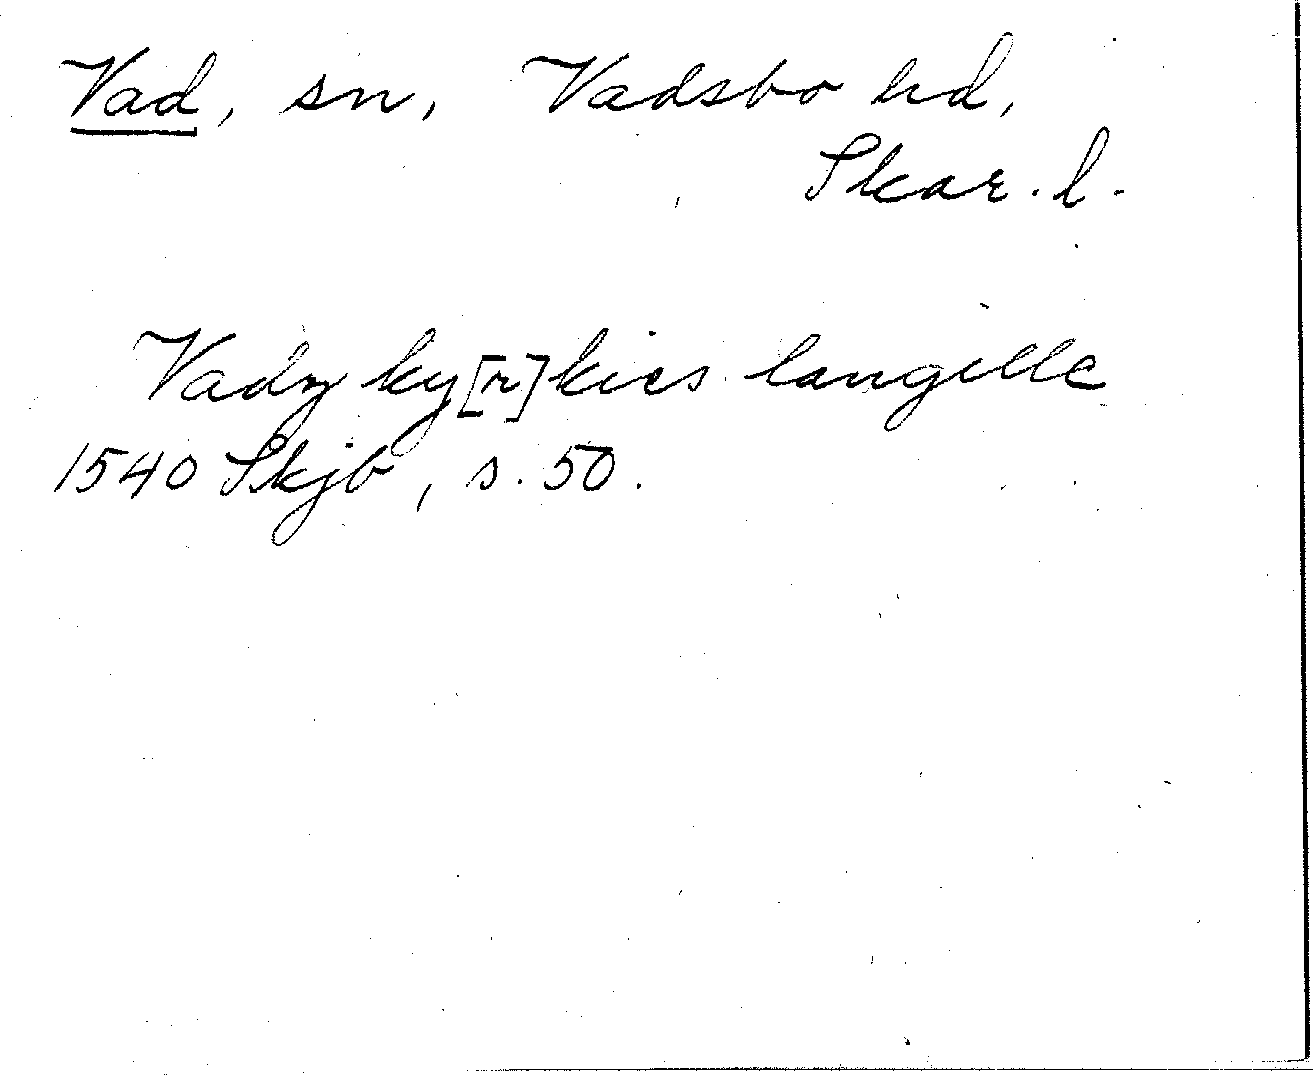 Vad, sn, Vadsbo hd,
Skar. l.
Vadz ky[r]kies langille
1540 Skjb, s. 50.